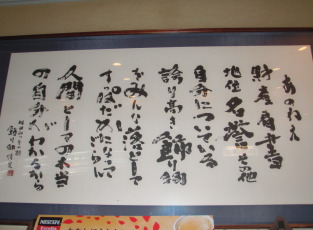 あのねえ
財産肩書
地位名誉その他
自分についている
誇り高き飾り物
をみんな落として
すっぱだかになって
ごらん
人間としての本当
の自分がわかるから
NESCAFÉ